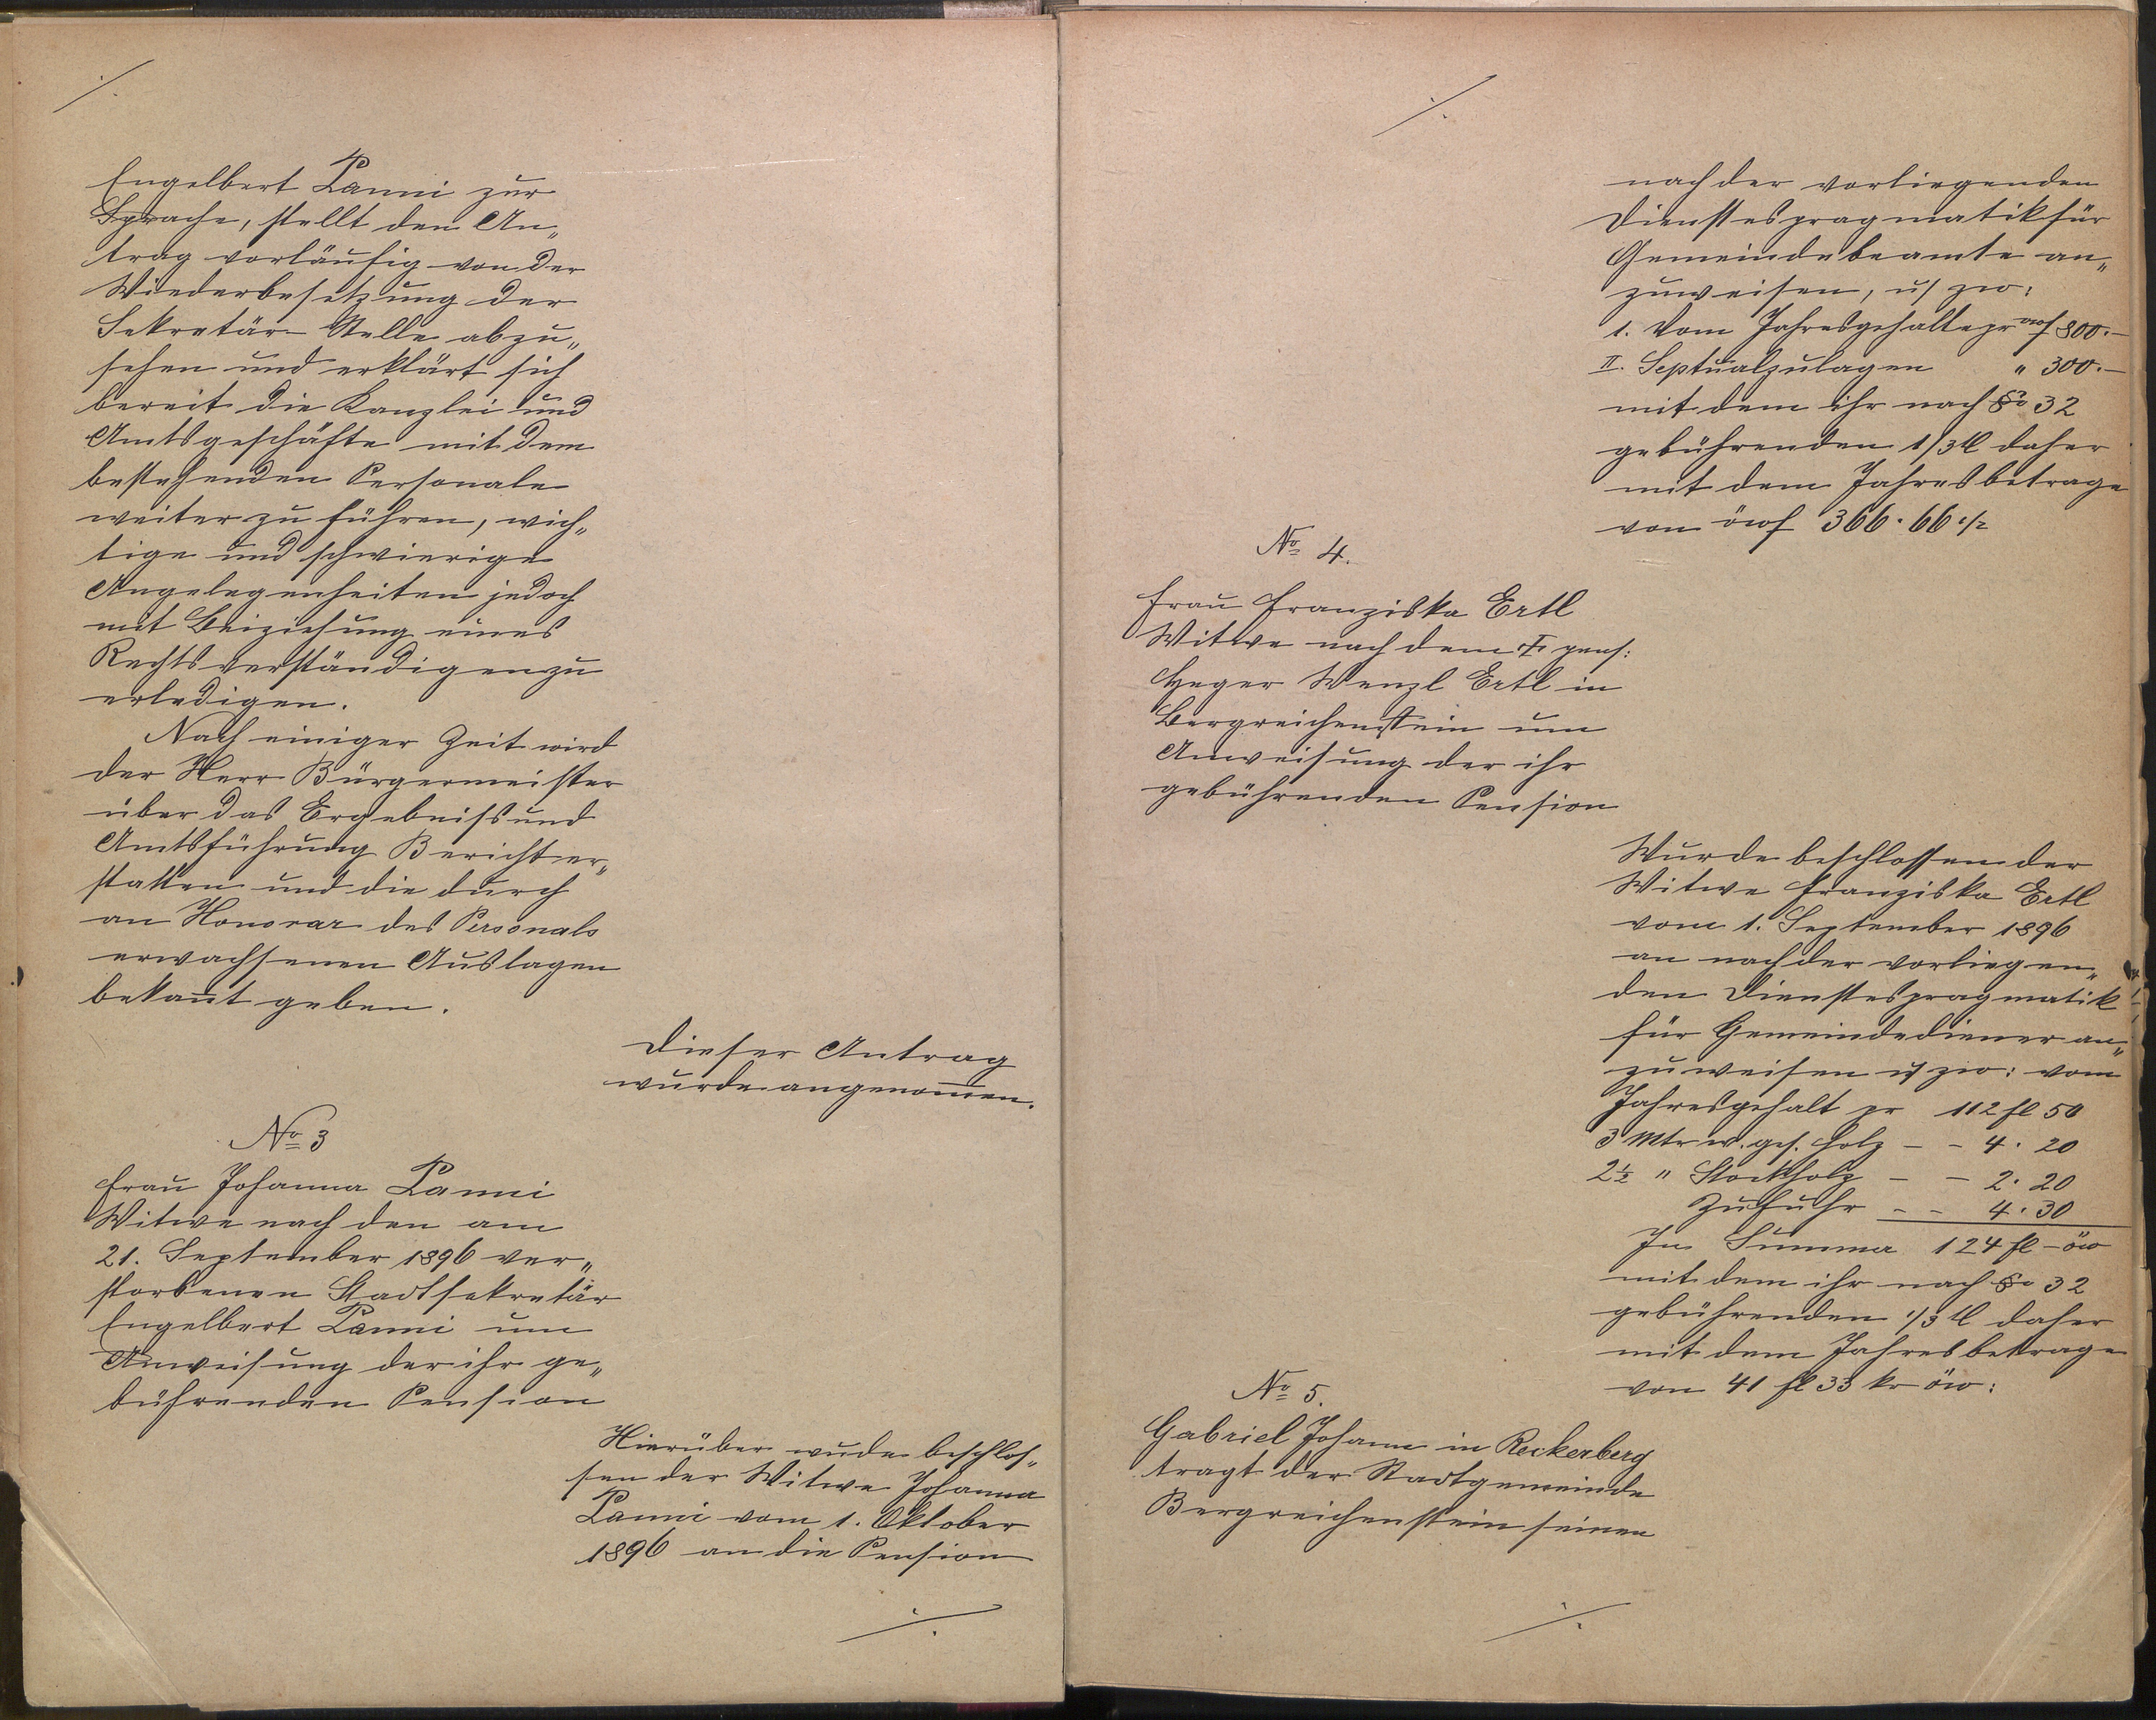 ./.
Engelbert Panni zur
Sprache, stellt den An„
trag vorläufig von der
Wiederbesetzung der
Sekretär-Stelle abzu„
sehen und erklärt sich
bereit die Kanzlei und
Amtsgeschäfte mit dem
bestehenden Personale
weiter zu führen, wich„
tige und schwierige
Angelegenheiten jedoch
mit Beiziehung eines
Rechtsverständigen zu
erledigen.
Nach einiger Zeit wird
der Herr Bürgermeister
über das Ergebniss und
Amtsführung Bericht er„
statten und die durch
an Honorar des Personals
erwachsenen Auslagen
bekannt geben.
Dieser Antrag
wurde angenommen.
No 3
Frau Johanna Panni
Witwe nach den am
21. September 1896 ver„
storbenen Stadtsekretär
Engelbert Panni um
Anweisung der ihr ge„
bührenden Pension
Hierüber wude beschlos„
sen der Witwe Johanna
Panni vom 1. Oktober
1896 an die Pension
./.
./.
nach der vorliegenden
Dienstespragmatik für
Gemeindebeamte an„
zuweisen, u/ zw:
1. Vom Jahresgehalte pr öwf 800.—
II. Septualzulagen " 300.—
mit dem ihr nach § 32
gebührenden 1/3tl daher
mit dem Jahresbetrage
von öwf 366.66 1/2
No 4.
Frau Franziska Ertl
Witwe nach dem † pens:
Heger Wenzl Ertl in
Bergreichenstein um
Anweisung der ihr
gebührenden Pension
Wurde beschlossen der
Witwe Franziska Ertl
vom 1. September 1896
an nach der vorliegen„
den Dienstespragmatik
für Gemeindediener an„
zuweisen u/ zw: vom
Jahresgehalt pr 112 fl 50
3 Mtr w. ges. Holz - - 4.20
2½ " Stockholz - - 2.20
Zufuhr - - 4.30
In Summa 124 fl - öw
mit dem ihr nach § 32
gebührenden 1/3tl daher
mit dem Jahresbetrage
von 41 fl 33 kr öw:
No 5.
Gabriel Johann in Reckerberg
tragt der Stadtgemeinde
Bergreichenstein seinen
./.